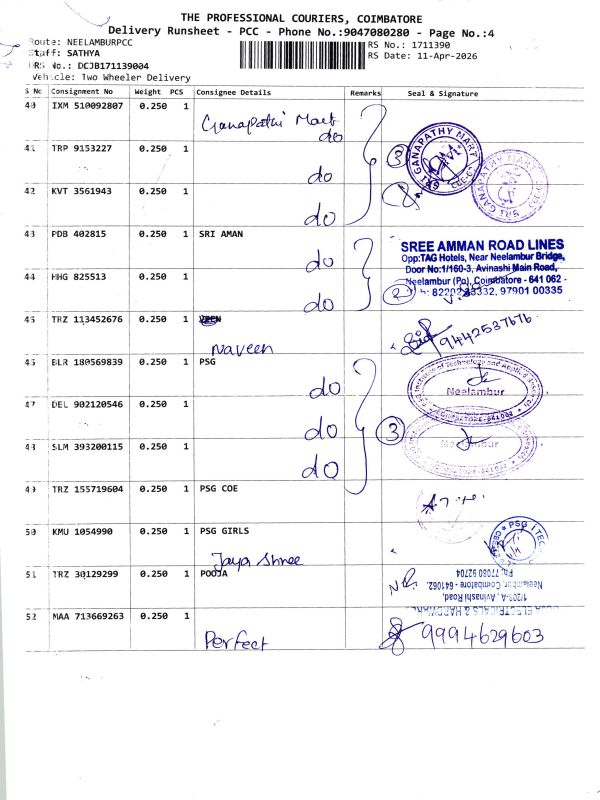 THE PROFESSIONAL COURIERS, COIMBATORE
Delivery Runsheet - PCC - Phone No.:9047080280 - Page No.:4
Route: NEELAMBURPCC
Staff: SATHYA
DRS No.: DCJB171139004
Vehicle: Two Wheeler Delivery
RS No.: 1711390
RS Date: 11-Apr-2026
S No Consignment No Weight PCS Consignee Details Remarks Seal & Signature
40 IXM 510092807 0.250 1 Ganapathi Mart
do
41 TRP 9153227 0.250 1 do
42 KVT 3561943 0.250 1 do
SRI GANAPATHY MART
43 PDB 402815 0.250 1 SRI AMAN do
44 HHG 825513 0.250 1 do 2
SREE AMMAN ROAD LINES
Opp:TAG Hotels, Near Neelambur Bridge,
Door No:1/160-3, Avinashi Main Road,
Neelambur (Po), Coimbatore - 641 062
97901 00335
45 TRZ 113452676 0.250 1
Naveen 9442537676
46 BLR 180569839 0.250 1 PSG do
Neelambur
47 DEL 902120546 0.250 1 do 3
Neelambur
48 SLM 393200115 0.250 1 do
49 TRZ 155719604 0.250 1 PSG COE
50 KMU 1054990 0.250 1 PSG GIRLS
Jaya Shree
51 TRZ 30129299 0.250 1 POOJA
Ph: 77080 92704
Neelambur, Coimbatore - 641062.
1/208-A, Avinashi Road,
ELECTRICALS & HARDWARE
52 MAA 713669263 0.250 1
Perfect 9994629603